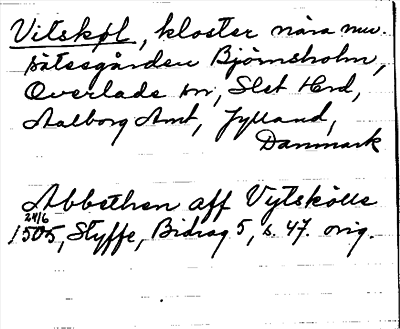 Vitskøl, kloster nära nuv.
sätesgården Björnsholm,
Overlade sn, Slet Hrd,
Aalborg Amt, Jylland,
Danmark
Abbethen aff Vytskölls
24/6
1505, Styffe, Bidrag 5, s. 47. orig.